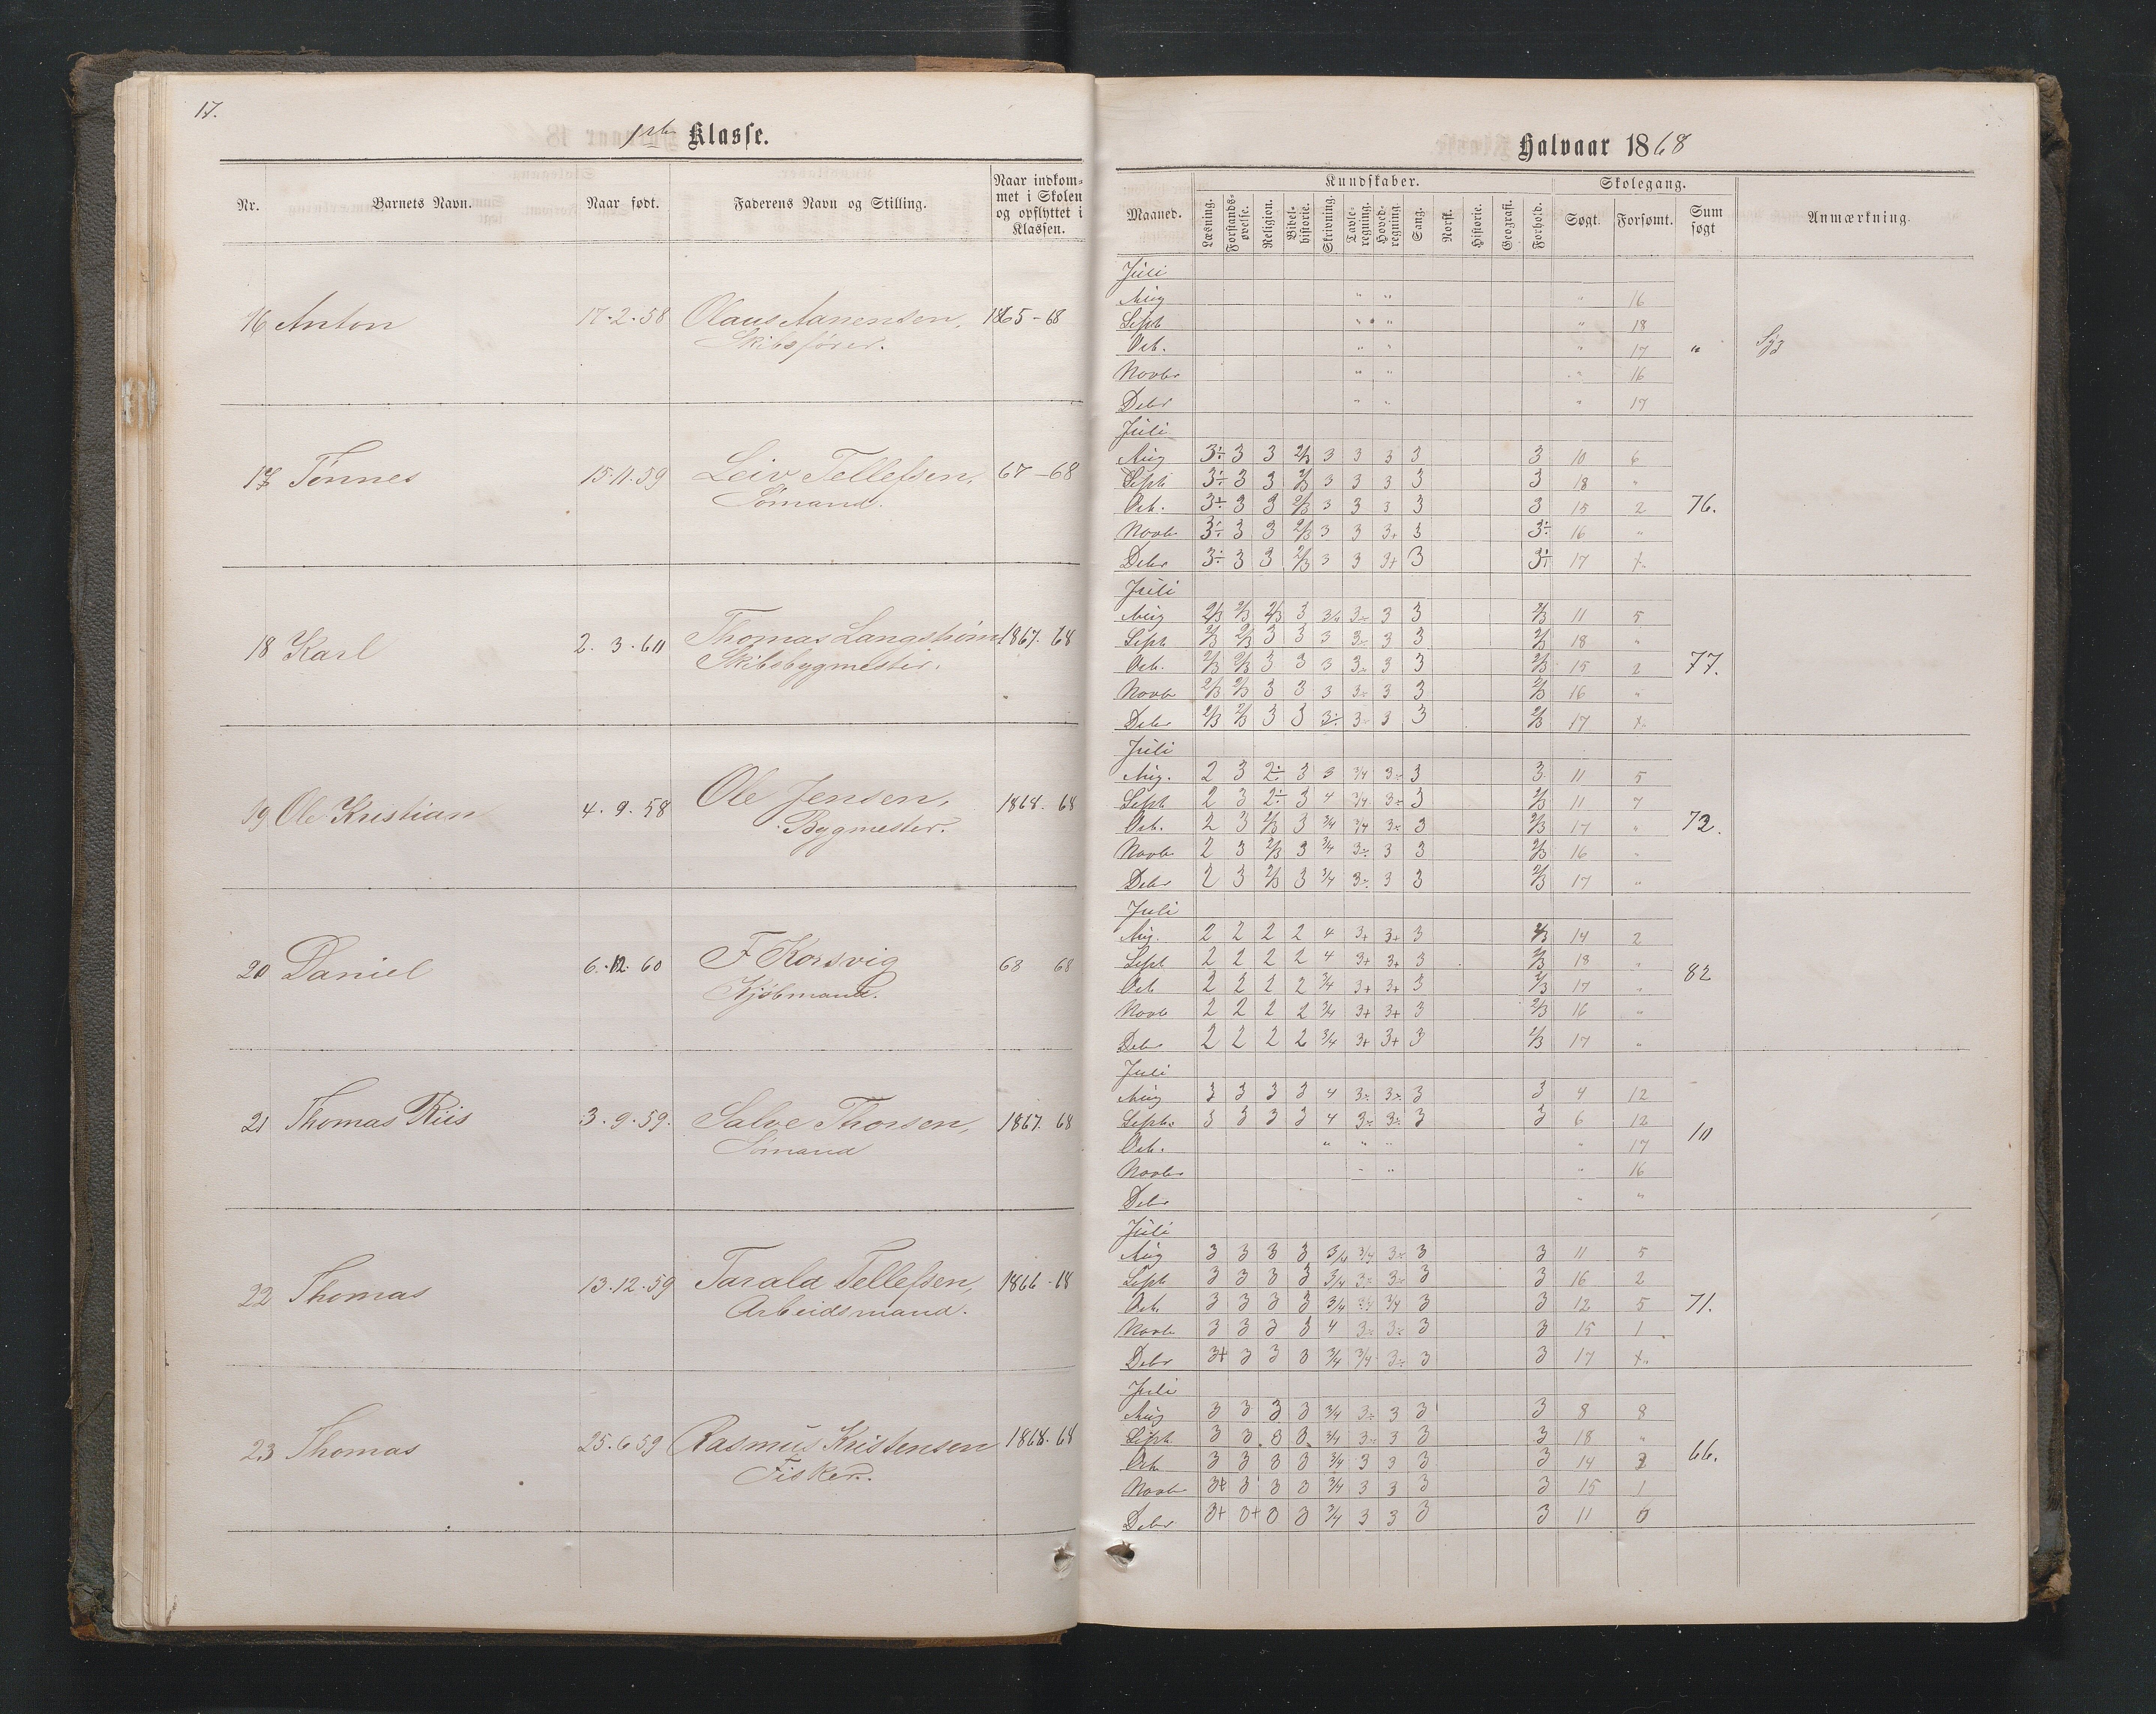 17.
1ste Klasse.
Nr. Barnets Navn. Naar født. Faderens Navn og Stilling. Naar indkommet i Skolen og opflyttet i Klassen.
16 Anton 17.2.58 Olaus Aanensen, 1865-68
Skibsfører.
17 Tønnes 15.11.59 Leiv Tellefsen, 67-68
Sømand.
18 Karl 2.3.60 Thomas Langstrøm 1867. 68
Skibsbygmester.
19 Ole Kristian 4.9.58 Ole Jensen, 1868. 68
Bygmester.
20 Daniel 6.12.60 F Korsvig 68 68
Kjøbmand.
21 Thomas Riis 3.9.59. Salve Thorsen, 1867. 68
Sømand
22 Thomas 13.12.59 Tarald Tellefsen, 1866-68
Arbeidsmand.
23 Thomas 25.6.59 Rasmus Kristensen 1868. 68
Fisker.
Halvaar 1868
Kundskaber. Skolegang.
Maaned. Læsning. Forstandsøvelse. Religion. Bibelhistorie. Skrivning. Tavleregning. Hovedregning. Sang. Norsk. Historie. Geografi. Forhold. Søgt. Forsømt. Sum søgt Anmærkning.
Juli
Aug " " " 16
Sept " " " 18
Octb. " " " 17 " Syg
Novbr " " " 16
Debr " " " 17
Juli
Aug 3÷ 3 3 2/3 3 3 3 3 3 10 6
Sept 3÷ 3 3 2/3 3 3 3 3 3 18 "
Octb. 3÷ 3 3 2/3 3 3 3 3 3 15 2 76.
Novb 3÷ 3 3 2/3 3 3 3+ 3 3÷ 16 "
Debr 3÷ 3 3 2/3 3 3 3+ 3 3÷ 17
Juli
Aug 2/3 2/3 2/3 3 3/4 3÷ 3 3 2/3 11 5
Sept 2/3 2/3 3 3 3 3÷ 3 3 2/3 18 "
Octb. 2/3 2/3 3 3 3 3÷ 3 3 2/3 15 2 77.
Novb 2/3 2/3 3 3 3 3÷ 3 3 2/3 16 "
Debr 2/3 2/3 3 3 3÷ 3÷ 3 3 2/3 17
Juli
Aug. 2 3 2÷ 3 3 3/4 3÷ 3 3 11 5
Sept 2 3 2÷ 3 4 3/4 3÷ 3 2/3 11 7
Octb. 2 3 2/3 3 3/4 3/4 3÷ 3 2/3 17 " 72.
Novb 2 3 2/3 3 3/4 3÷ 3 3 2/3 16 "
Debr 2 3 2/3 3 3/4 3÷ 3 3 2/3 17 "
Juli
Aug. 2 2 2 2 4 3+ 3+ 3 2/3 14 2
Sept 2 2 2 2 4 3+ 3+ 3 2/3 18 "
Octb 2 2 2 2 3/4 3+ 3+ 3 2/3 17 " 82
Novb 2 2 2 2 3/4 3+ 3+ 3 2/3 16 "
Debr 2 2 2 2 3/4 3+ 3+ 3 2/3 17 "
Juli
Aug 3 3 3 3 4 3÷ 3÷ 3 3 4 12
Septb. 3 3 3 3 4 3÷ 3÷ 3 3 6 12
Octb. " " " " 17 10
Novbr " " " 16
Debr " "
Juli
Aug 3 3 3 3 3/4 3/4 3÷ 3 3 11 5
Sept 3 3 3 3 3/4 3÷ 3÷ 3 3 16 2
Octb. 3 3 3 3 3/4 3/4 3/4 3 3 12 5 71.
Novb 3 3 3 3 4 3÷ 3÷ 3 3 15 1
Debr 3+ 3 3 3 3/4 3/4 3÷ 3 3 17
Juli
Aug 3 3 3 3 3/4 3÷ 3 3 3 8 8
Sept. 3 3 3 3 3/4 3÷ 3 3 3 18 "
Octb 3 3 3 3 3/4 3 3 3 3 14 66.
Novbr 3+ 3 3 3 3/4 3 3 3 3 15 1
Debr 3+ 3+ 3 3 3/4 3 3 3 3 11 6